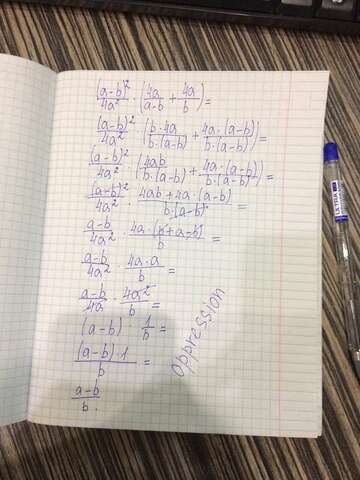 (a-b)²/4a² · (4a/a-b + 4a/b) =
(a-b)²/4a² · (b·4a/b·(a-b) + 4a·(a-b)/b·(a-b)) =
(a-b)²/4a² · (4ab/b·(a-b) + 4a·(a-b)/b·(a-b)) =
(a-b)²/4a² · 4ab+4a·(a-b)/b·(a-b) =
a-b/4a² · 4a·(b+a-b)/b =
a-b/4a² · 4a·a/b =
a-b/4a · 4a²/b =
(a-b) · 1/b =
(a-b)·1/b =
a-b/b.
oppression
ULTRA